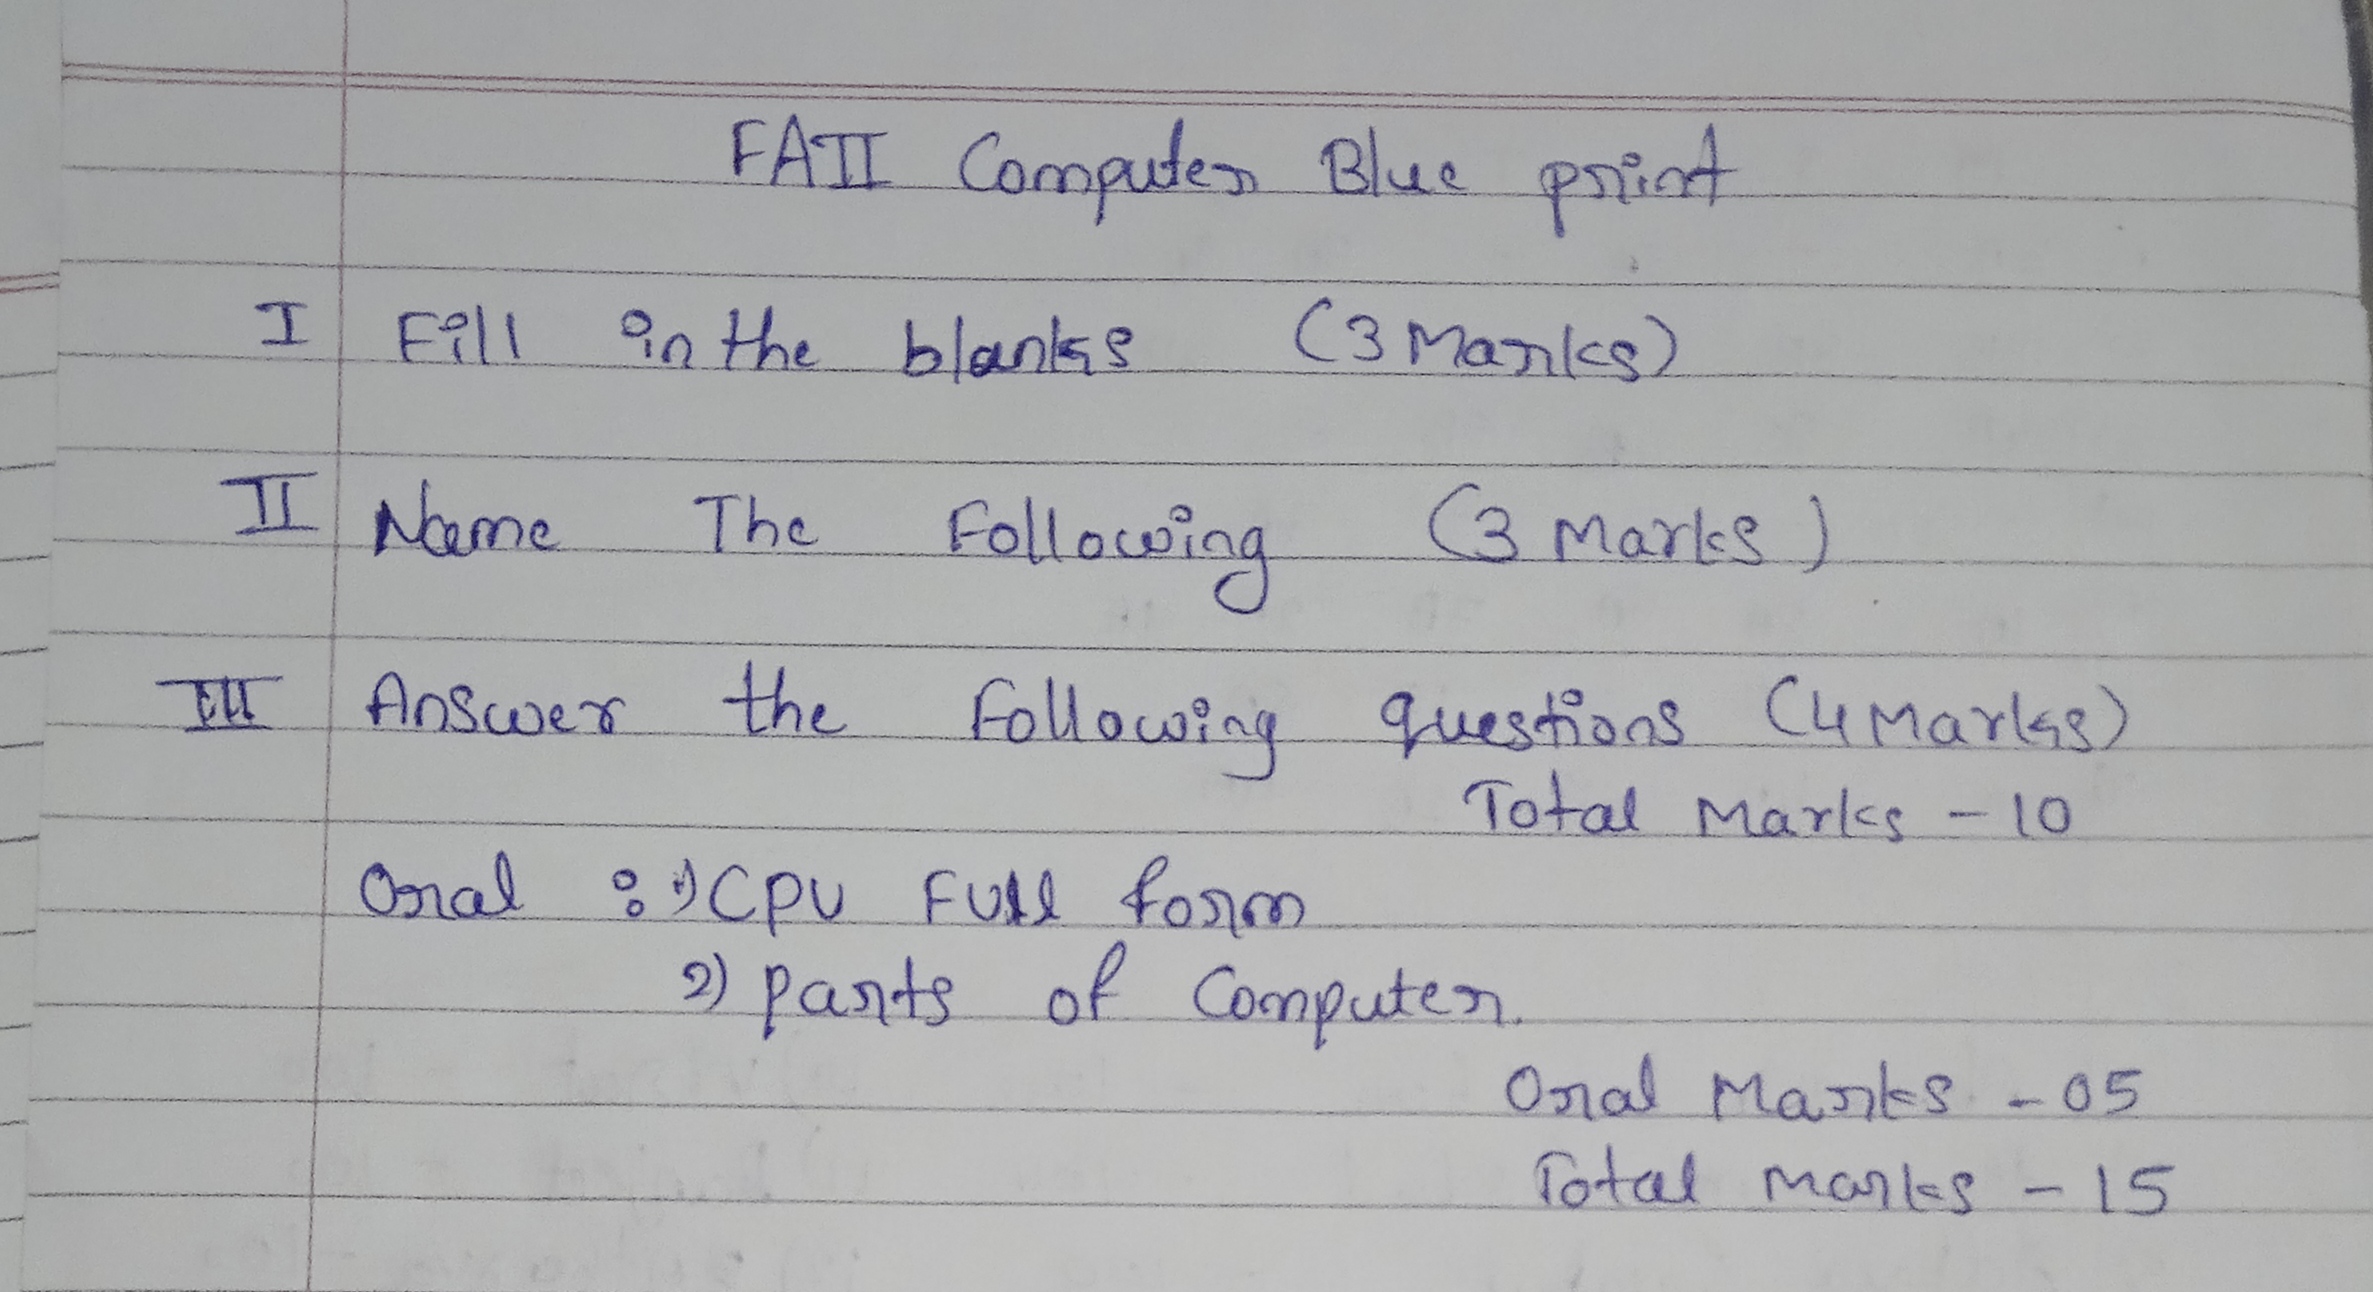 FAII Computer Blue print
I Fill in the blanks (3 Marks)
II Name The Following (3 Marks)
III Answer the following questions (4 Marks)
Total Marks - 10
Oral : 1) CPU Full form
2) parts of Computer.
Oral Marks - 05
Total Marks - 15